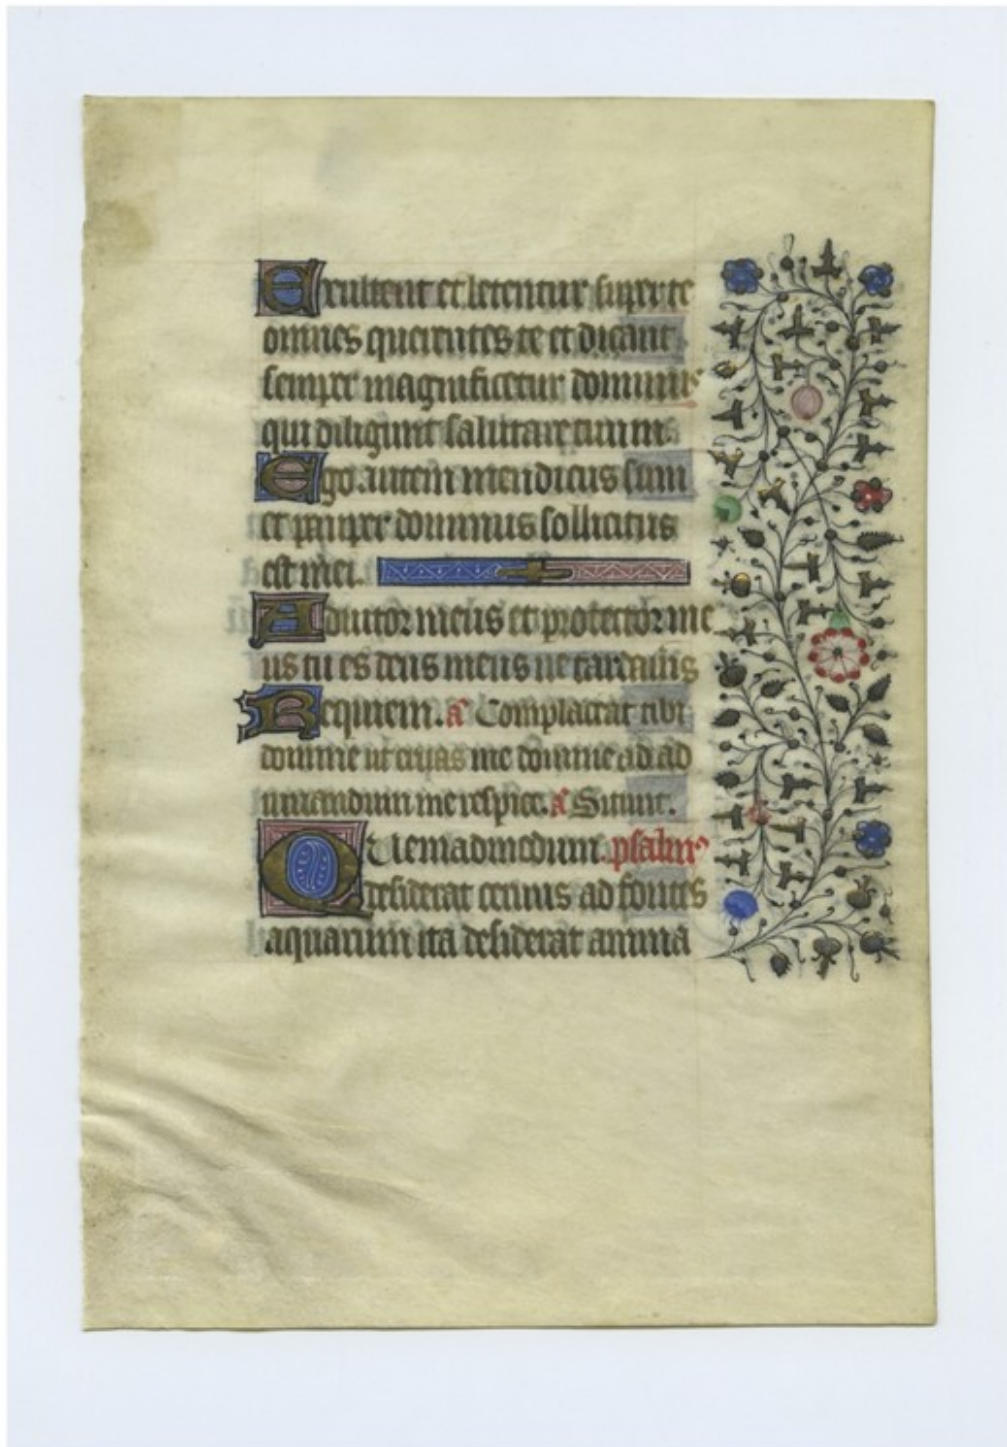 Exultent et letentur super te
omnes querentes te et dicant
semper magnificetur dominus
qui diligunt salutare tuum.
Ego autem mendicus sum
et pauper dominus sollicitus
est mei.
Adiutor meus et protector me
us tu es deus meus ne tardaveris
Requiem. a Complaceat tibi
domine ut eruas me domine ad ad
iuvandum me respice. a Sitivit.
Quemadmodum. psalmus
desiderat cervus ad fontes
aquarum ita desiderat anima